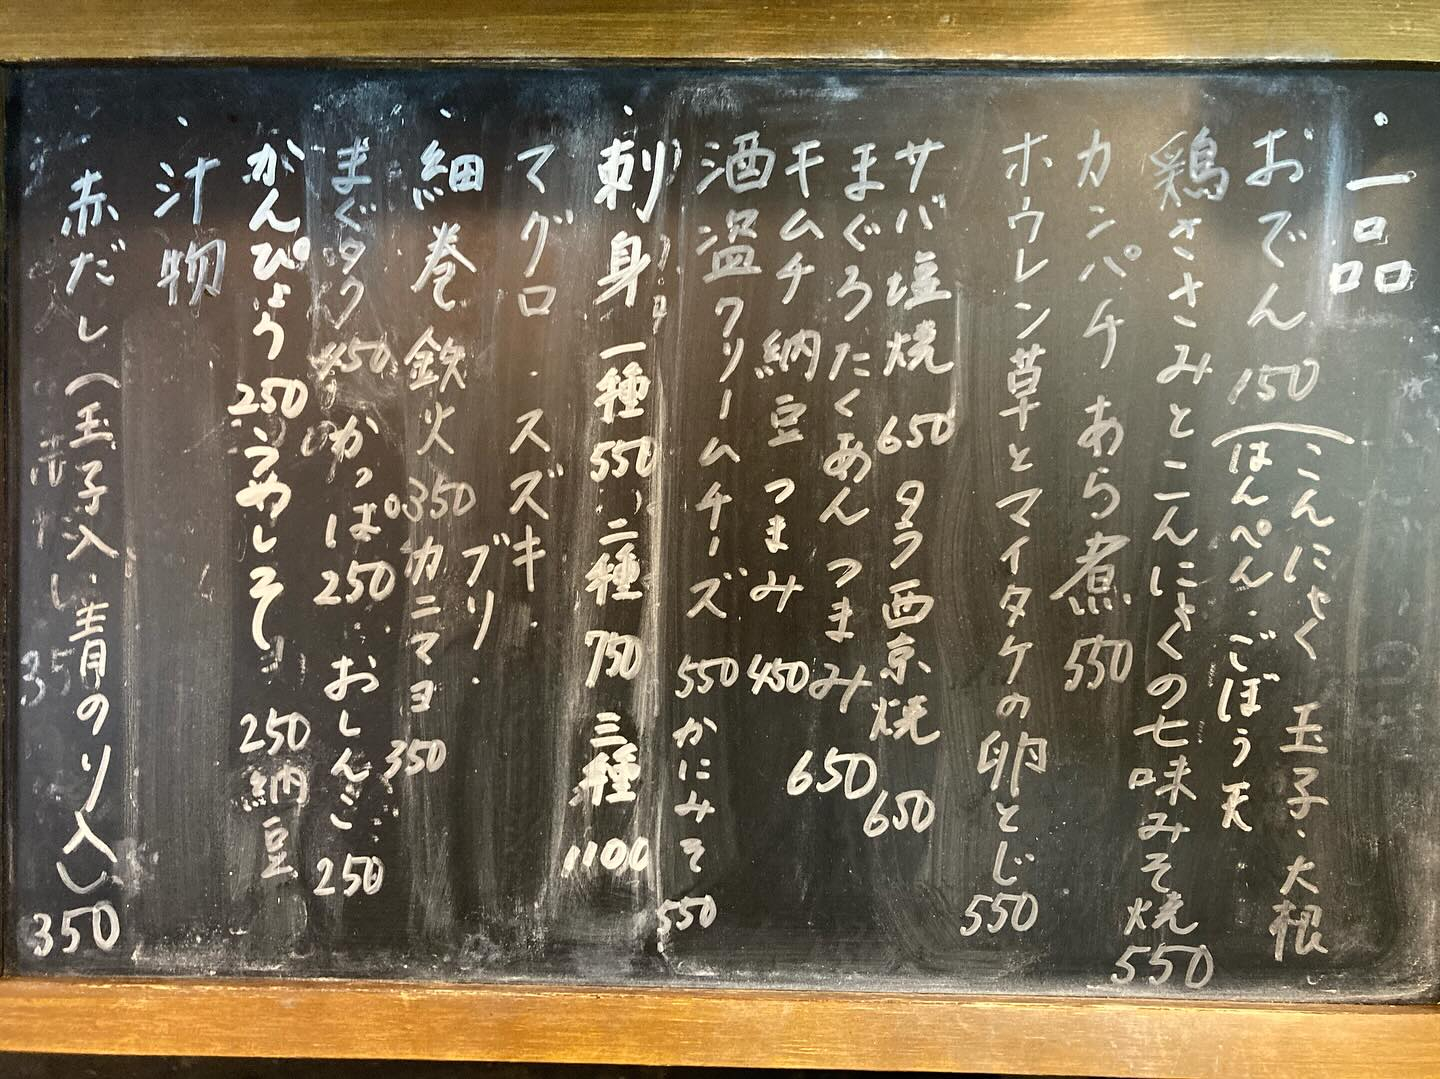 ・一品
おでん 150(こんにゃく 玉子・大根
はんぺん・ごぼう天
鶏ささみとこんにゃくの七味みそ焼 550
カンパチ あら煮 550
ホウレン草とマイタケの卵とじ 550
サバ塩焼 650 タラ西京焼 650
まぐろたくあん つまみ 650
キムチ 納豆 つまみ 450
酒盗クリームチーズ 550 かにみそ 550
・刺身 一種 550 二種 750 三種 1100
マグロ・スズキ・ブリ・
・細巻 鉄火 350 カニマヨ 350
まぐタク 450 かっぱ 250 おしんこ 250
かんぴょう 250 うめしそ 250 納豆
・汁物
赤だし(玉子入り 青のり入り) 350